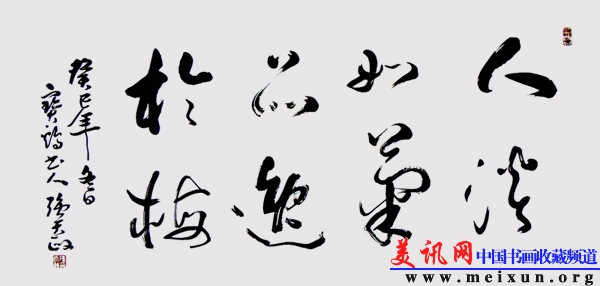 人淡
如菊
品逸
於梅
癸巳年冬日
美讯网 中国书画收藏频道
www.meixun.org